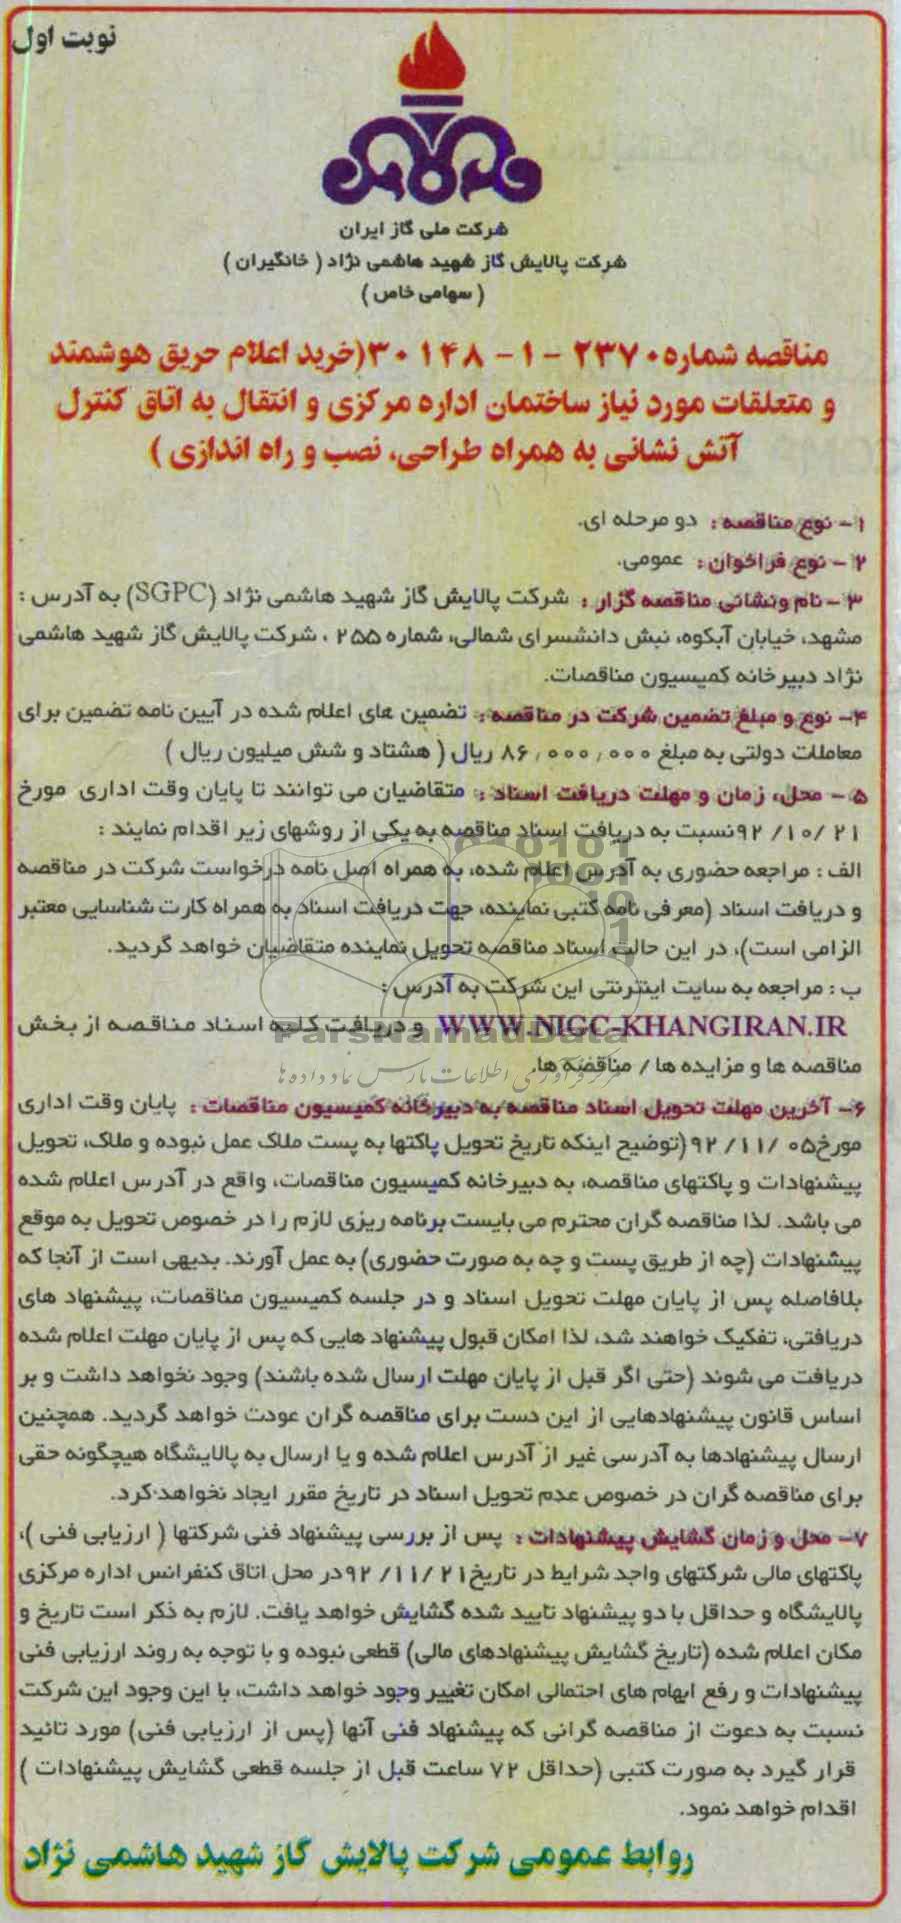 نوبت اول
شرکت ملی گاز ایران
شرکت پالایش گاز شهید هاشمی نژاد ( خانگیران )
( سهامی خاص )
مناقصه شماره ۲۳۷۰ - ۱ - ۳۰۱۴۸ (خرید اعلام حریق هوشمند
و متعلقات مورد نیاز ساختمان اداره مرکزی و انتقال به اتاق کنترل
آتش نشانی به همراه طراحی، نصب و راه اندازی )
۱- نوع مناقصه : دو مرحله ای.
۲ - نوع فراخوان : عمومی.
۳ - نام ونشانی مناقصه گزار : شرکت پالایش گاز شهید هاشمی نژاد (SGPC) به آدرس :
مشهد، خیابان آبکوه، نبش دانشسرای شمالی، شماره ۲۵۵ ، شرکت پالایش گاز شهید هاشمی
نژاد دبیرخانه کمیسیون مناقصات.
۴- نوع و مبلغ تضمین شرکت در مناقصه : تضمین های اعلام شده در آیین نامه تضمین برای
معاملات دولتی به مبلغ ۸۶٫۰۰۰٫۰۰۰ ریال ( هشتاد و شش میلیون ریال )
۵ - محل، زمان و مهلت دریافت اسناد : متقاضیان می توانند تا پایان وقت اداری مورخ
۲۱ /۱۰/ ۹۲نسبت به دریافت اسناد مناقصه به یکی از روشهای زیر اقدام نمایند :
الف : مراجعه حضوری به آدرس اعلام شده، به همراه اصل نامه درخواست شرکت در مناقصه
و دریافت اسناد (معرفی نامه کتبی نماینده، جهت دریافت اسناد به همراه کارت شناسایی معتبر
الزامی است)، در این حالت اسناد مناقصه تحویل نماینده متقاضیان خواهد گردید.
ب : مراجعه به سایت اینترنتی این شرکت به آدرس :
WWW.NIGC-KHANGIRAN.IR و دریافت کلیه اسناد مناقصه از بخش
ParsNamadData
مناقصه ها و مزایده ها / مناقصه ها.
مرکز فرآوری اطلاعات پارس نماد داده ها
۶- آخرین مهلت تحویل اسناد مناقصه به دبیرخانه کمیسیون مناقصات : پایان وقت اداری
مورخ۰۵ /۱۱/ ۹۲(توضیح اینکه تاریخ تحویل پاکتها به پست ملاک عمل نبوده و ملاک، تحویل
پیشنهادات و پاکتهای مناقصه، به دبیرخانه کمیسیون مناقصات، واقع در آدرس اعلام شده
می باشد. لذا مناقصه گران محترم می بایست برنامه ریزی لازم را در خصوص تحویل به موقع
پیشنهادات (چه از طریق پست و چه به صورت حضوری) به عمل آورند. بدیهی است از آنجا که
بلافاصله پس از پایان مهلت تحویل اسناد و در جلسه کمیسیون مناقصات، پیشنهاد های
دریافتی، تفکیک خواهند شد، لذا امکان قبول پیشنهاد هایی که پس از پایان مهلت اعلام شده
دریافت می شوند (حتی اگر قبل از پایان مهلت ارسال شده باشند) وجود نخواهد داشت و بر
اساس قانون پیشنهادهایی از این دست برای مناقصه گران عودت خواهد گردید. همچنین
ارسال پیشنهادها به آدرسی غیر از آدرس اعلام شده و یا ارسال به پالایشگاه هیچگونه حقی
برای مناقصه گران در خصوص عدم تحویل اسناد در تاریخ مقرر ایجاد نخواهد کرد.
۷- محل و زمان گشایش پیشنهادات : پس از بررسی پیشنهاد فنی شرکتها ( ارزیابی فنی )،
پاکتهای مالی شرکتهای واجد شرایط در تاریخ۲۱ /۱۱/ ۹۲در محل اتاق کنفرانس اداره مرکزی
پالایشگاه و حداقل با دو پیشنهاد تایید شده گشایش خواهد یافت. لازم به ذکر است تاریخ و
مکان اعلام شده (تاریخ گشایش پیشنهادهای مالی) قطعی نبوده و با توجه به روند ارزیابی فنی
پیشنهادات و رفع ابهام های احتمالی امکان تغییر وجود خواهد داشت، با این وجود این شرکت
نسبت به دعوت از مناقصه گرانی که پیشنهاد فنی آنها (پس از ارزیابی فنی) مورد تائید
قرار گیرد به صورت کتبی (حداقل ۷۲ ساعت قبل از جلسه قطعی گشایش پیشنهادات )
اقدام خواهد نمود.
روابط عمومی شرکت پالایش گاز شهید هاشمی نژاد